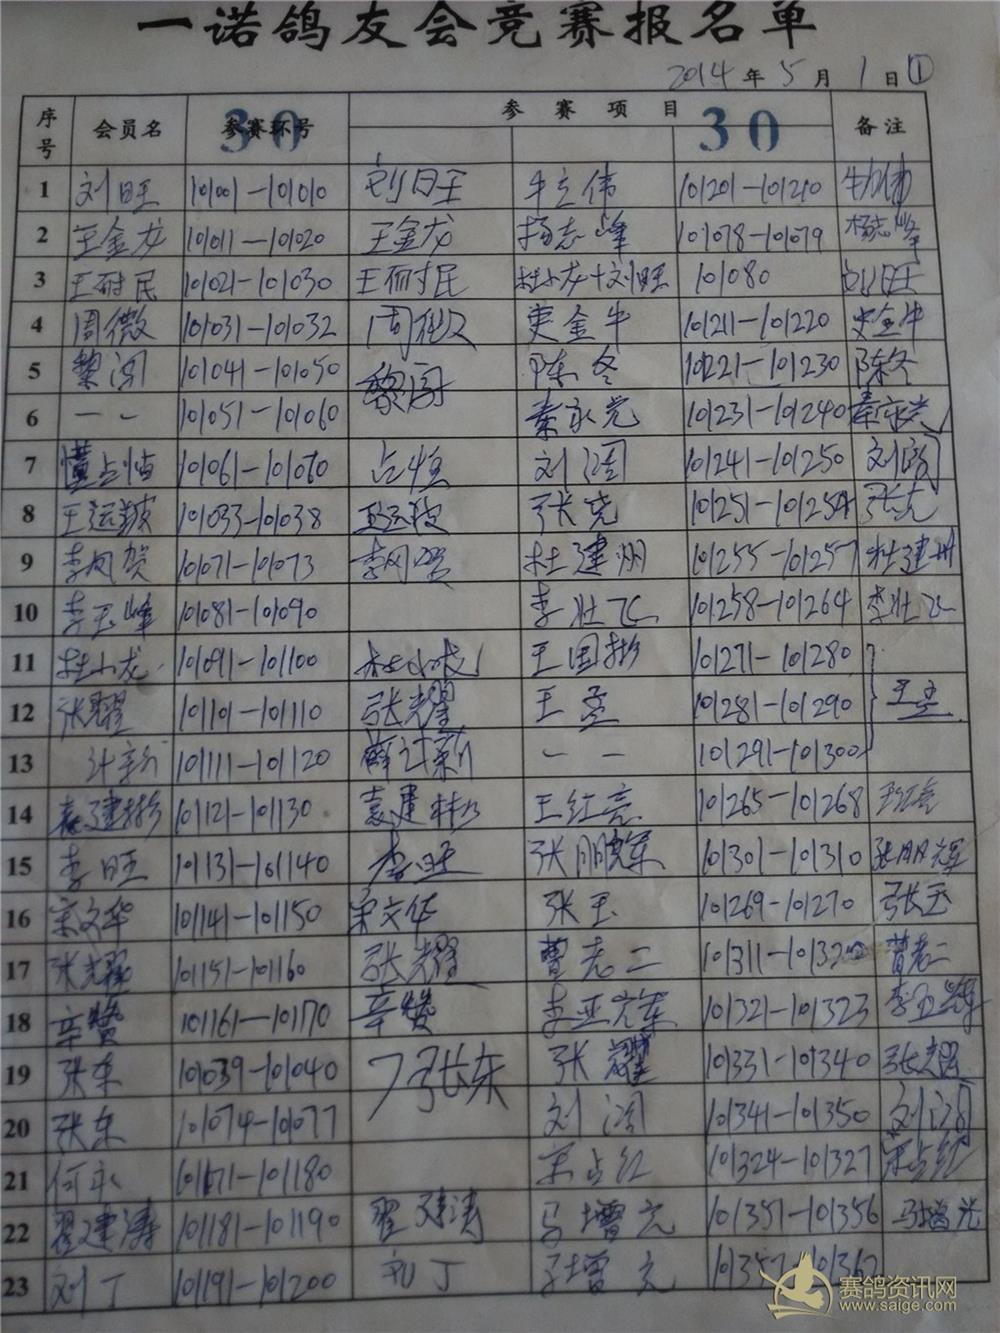 一诺鸽友会竞赛报名单
2014 年 5 月 1 日 ①
序号 会员名 参赛环号 30 参赛项目 30 备注
1 刘旺 101001-101010 刘旺 牛立伟 101201-101210
2 王金龙 101011-101020 王金龙 杨志峰 101078-101079 杨志峰
3 王耐民 101021-101030 王耐民 杜小龙+刘旺 101080 刘旺
4 周微 101031-101032 吏金牛 101211-101220 吏金牛
5 黎阔 101041-101050 黎阔 陈冬 101221-101230 陈冬
6 一 一 101051-101060 秦永光 101231-101240 秦永光
7 101061-101070 占恒 刘阔 101241-101250 刘阔
8 101033-101038 张克 101251-101254 张克
9 李凤贺 101071-101073 李凤贺 杜建州 101255-101257 杜建州
10 李玉峰 101081-101090 李壮飞 101258-101264 李壮飞
11 杜小龙 101091-101100 杜小龙 王国彬 101271-101280
12 张耀 101101-101110 张耀 王圣 101281-101290 王圣
13 计新 101111-101120 薛计新 一 一 101291-101300
14 袁建彬 101121-101130 袁建彬 王红亮 101265-101268 王红亮
15 李旺 101131-101140 李旺 张朋辉 101301-101310 张朋辉
16 宋文华 101141-101150 宋文华 张玉 101269-101270 张玉
17 张耀 101151-101160 张耀 曹老二 101311-101320 曹老二
18 辛赞 101161-101170 辛赞 李亚辉 101321-101323 李亚辉
19 张东 101039-101040 张东 张耀 101331-101340 张耀
20 张东 101074-101077 刘阔 101341-101350 刘阔
21 何永 101171-101180 宋占红 101324-101327 宋占红
22 翟建涛 101181-101190 翟建涛 马增光 101351-101356 马增光
23 刘丁 101191-101200 刘丁 101357-101362
赛鸽资讯网
www.saige.com